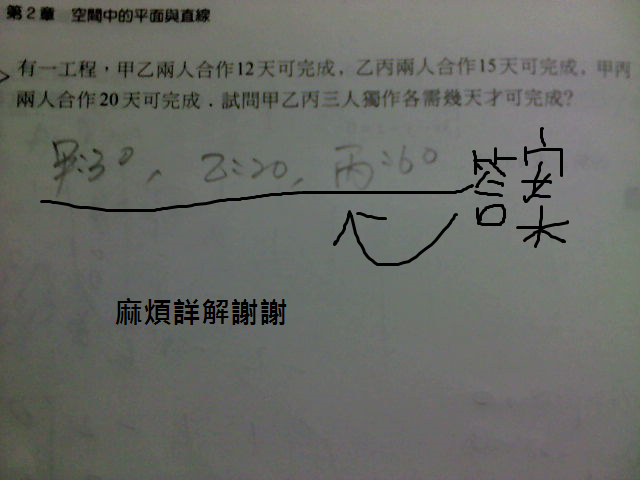 第2章 空間中的平面與直線
有一工程,甲乙兩人合作12天可完成,乙丙兩人合作15天可完成,甲丙
兩人合作20天可完成.試問甲乙丙三人獨作各需幾天才可完成?
甲:30, 乙:20, 丙:60
答案
麻煩詳解謝謝